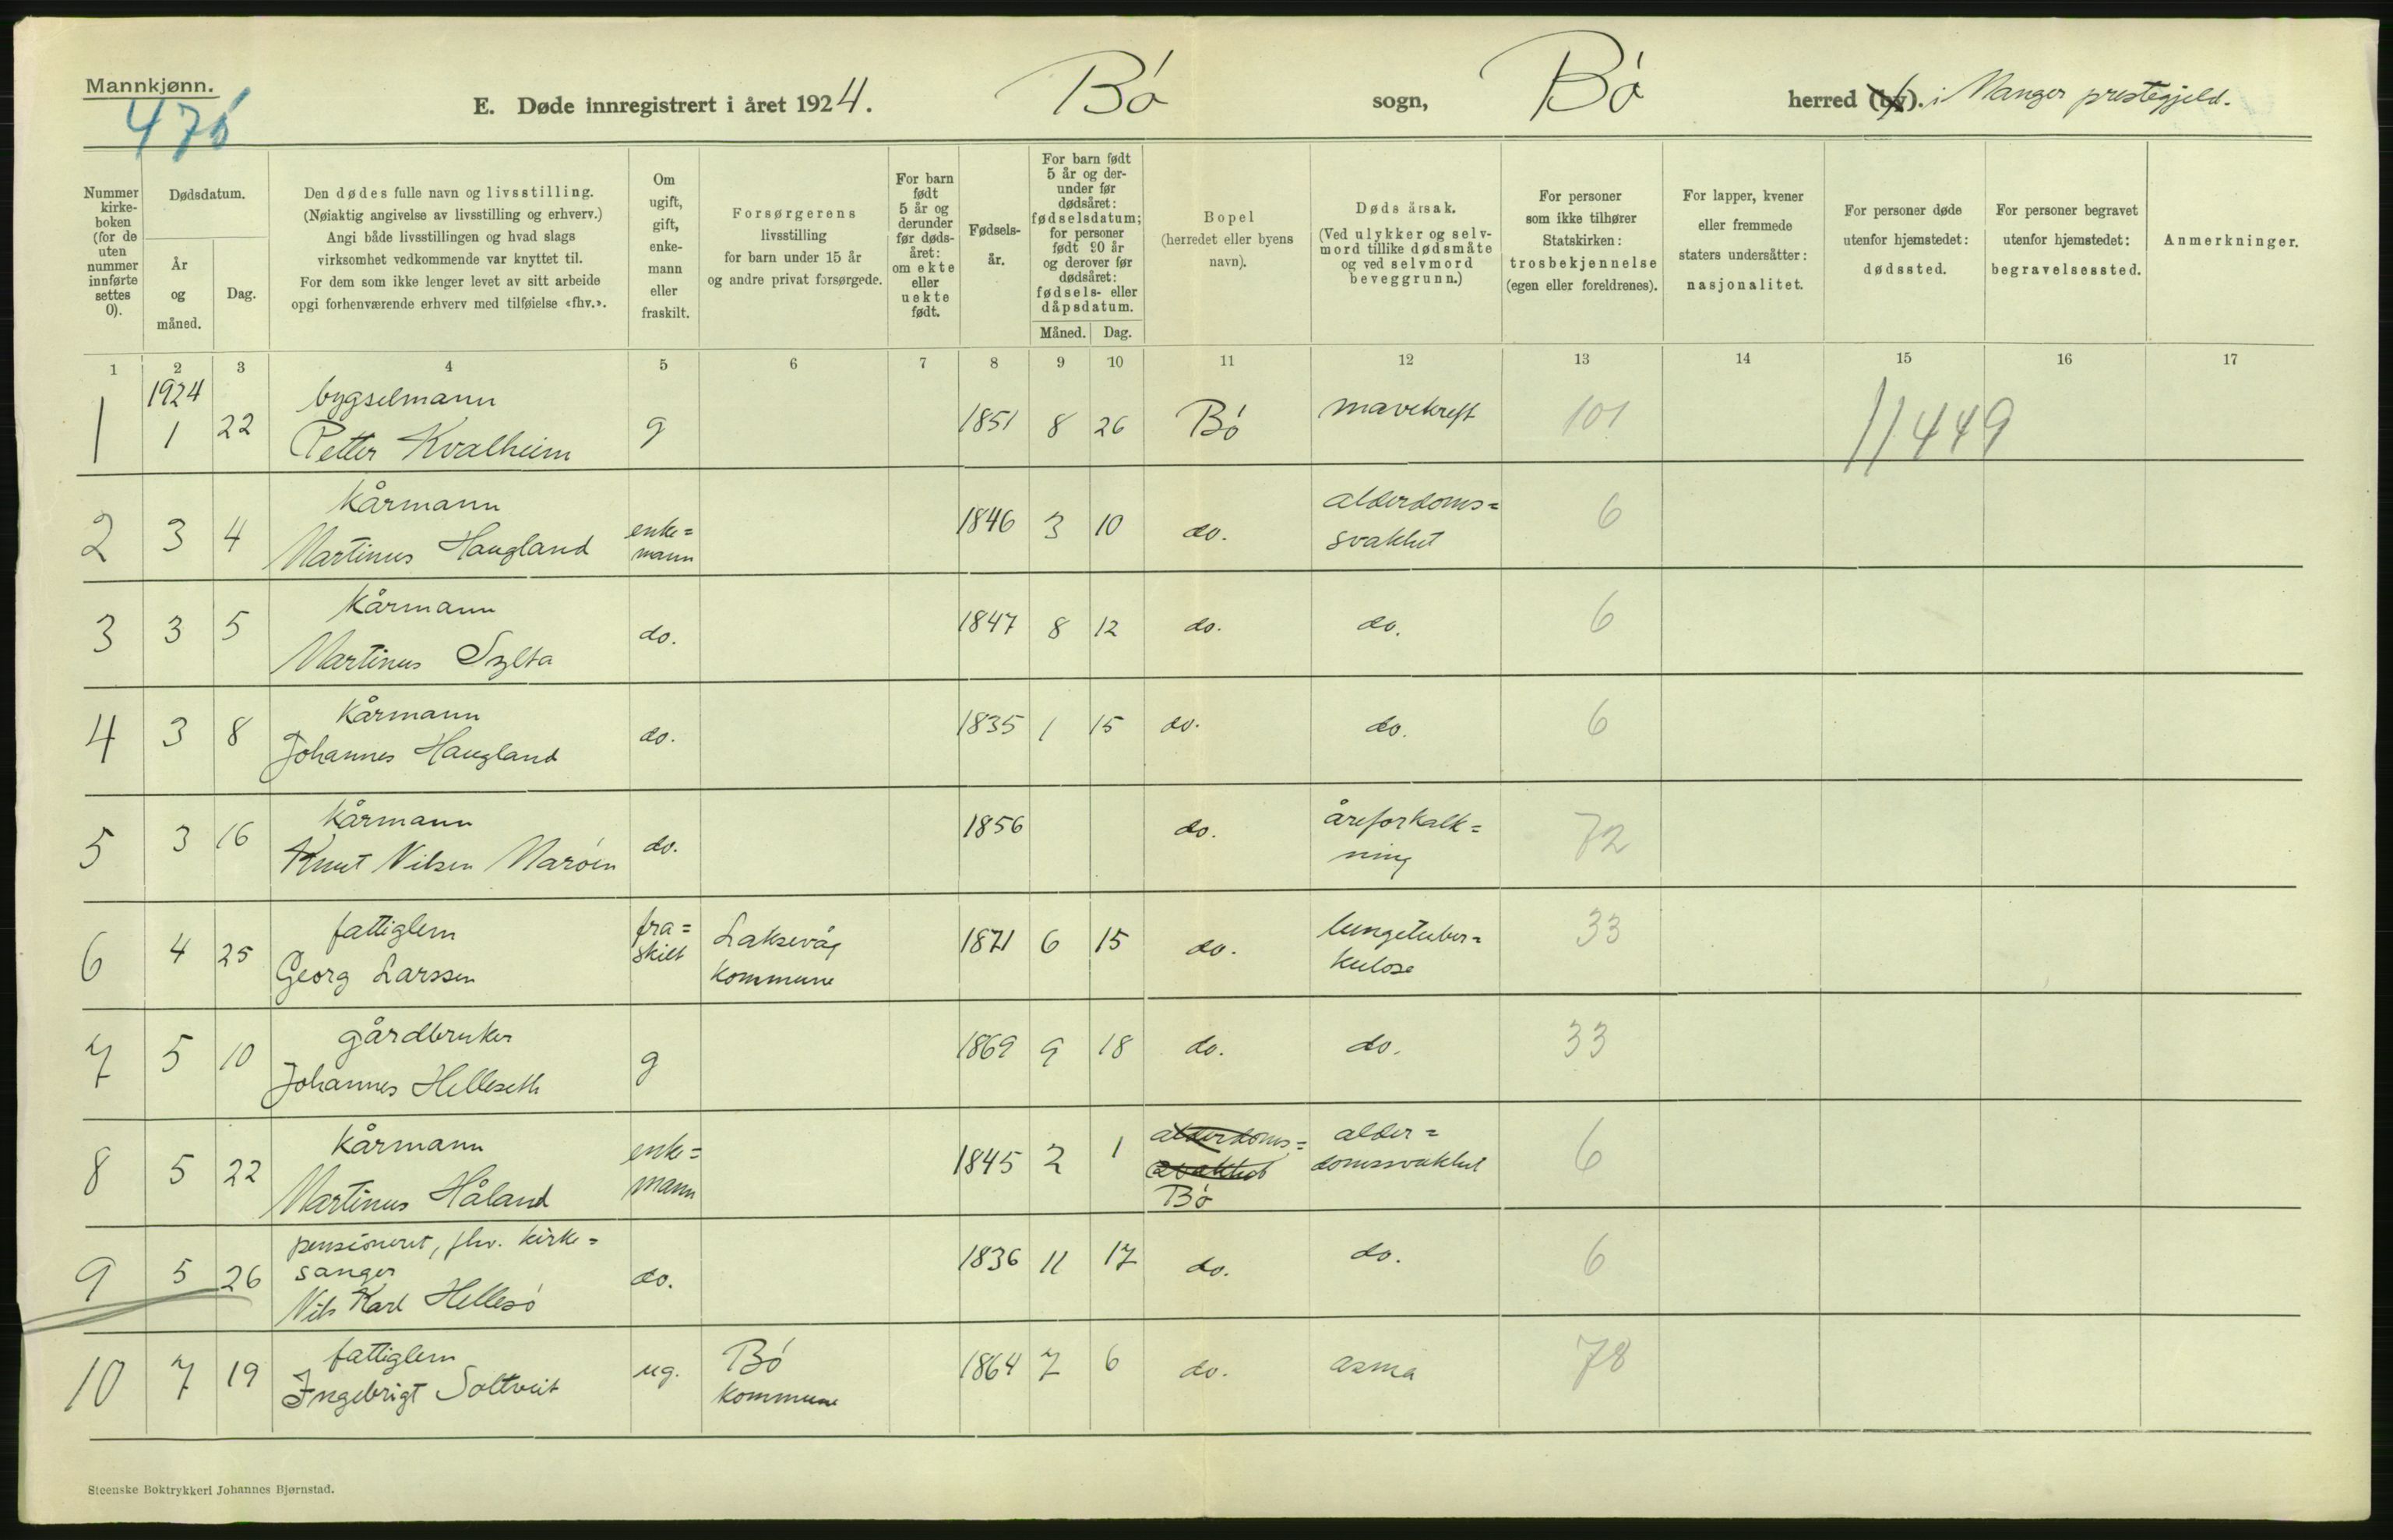 Mannkjønn.
476
E. Døde innregistrert i året 1924. Bø sogn, Bø herred (by). i Manger prestegjeld.
Nummer kirke-boken (for de uten nummer innførte settes 0).
Dødsdatum.
År og måned.
Dag.
Den dødes fulle navn og livsstilling.
(Nøiaktig angivelse av livsstilling og erhverv.)
Angi både livsstillingen og hvad slags
virksomhet vedkommende var knyttet til.
For dem som ikke lenger levet av sitt arbeide
opgi forhenværende erhverv med tilføielse «fhv.».
Om ugift, gift, enke-mann eller fraskilt.
Forsørgerens
livsstilling
for barn under 15 år
og andre privat forsørgede.
For barn født 5 år og derunder før døds-året: om ekte eller uekte født.
Fødsels-år.
For barn født 5 år og der-under før dødsåret: fødselsdatum; for personer født 90 år og derover før dødsåret: fødsels- eller dåpsdatum.
Måned. Dag.
Bopel
(herredet eller byens
navn).
Dødsårsak.
(Ved ulykker og selv-
mord tillike dødsmåte
og ved selvmord
beveggrunn.)
For personer
som ikke tilhører
Statskirken:
trosbekjennelse
(egen eller foreldrenes).
For lapper, kvener
eller fremmede
staters undersåtter:
nasjonalitet.
For personer døde
utenfor hjemstedet:
dødssted.
For personer begravet
utenfor hjemstedet:
begravelsessted.
Anmerkninger.
1 2 3 4 5 6 7 8 9 10 11 12 13 14 15 16 17
1924 bygselmann
1 1 22 Petter Kvalheim g 1851 8 26 Bø mavekreft 101 11449
kårmann alderdoms=
2 3 4 Martinus Haugland enke=mann 1846 3 10 do. svakhet 6
kårmann
3 3 5 Martinus Sylta do. 1847 8 12 do. do. 6
kårmann
4 3 8 Johannes Haugland do. 1835 1 15 do. do. 6
kårmann åreforkalk=
5 3 16 Knut Nilsen Marøen do. 1856 do. ning 72
fattiglem fra= Laksevåg lungetuber=
6 4 25 Georg Larssen skilt kommune 1871 6 15 do. kulose 33
gårdbruker
7 5 10 Johannes Helleseth g 1869 9 18 do. do. 33
kårmann enke= alderdoms= alder=
8 5 22 Martinus Håland mann 1845 2 1 svakhet domssvakhet 6
Bø
pensioneret, fhv. kirke=
sanger
9 5 26 Nils Karl Hellesø do. 1836 11 17 do. do. 6
fattiglem Bø
10 7 19 Ingebrigt Soltveit ug. kommune 1864 7 6 do. asma 78
Steenske Boktrykkeri Johannes Bjørnstad.